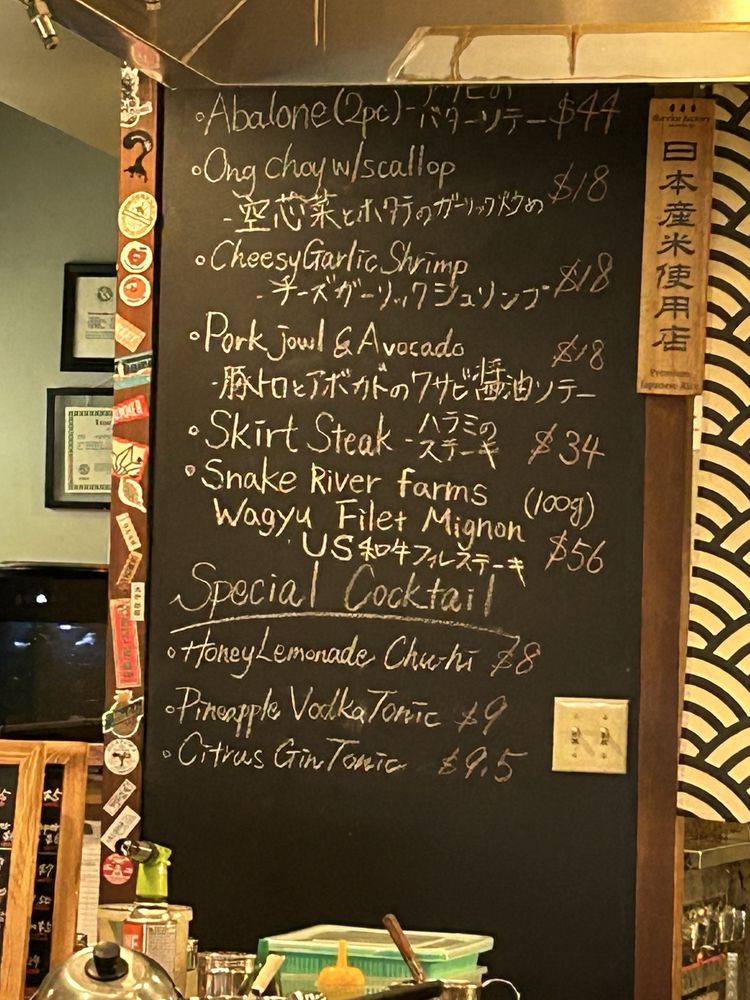 • Abalone (2pc) - アワビの
バターソテー $44
• Ong choy w/scallop $18
- 空芯菜とホタテのガーリック炒め
• Cheesy Garlic Shrimp $18
- チーズガーリックシュリンプ
• Pork jowl & Avocado $18
- 豚トロとアボカドのワサビ醤油ソテー
• Skirt Steak - ハラミの
ステーキ $34
• Snake River farms (100g)
Wagyu Filet Mignon
US和牛フィレステーキ $56
Special Cocktail
• Honey Lemonade Chu-hi $8
• Pineapple Vodka Tonic $9
• Citrus Gin Tonic $9.5
日本産米使用店
Premium
Japanese Rice